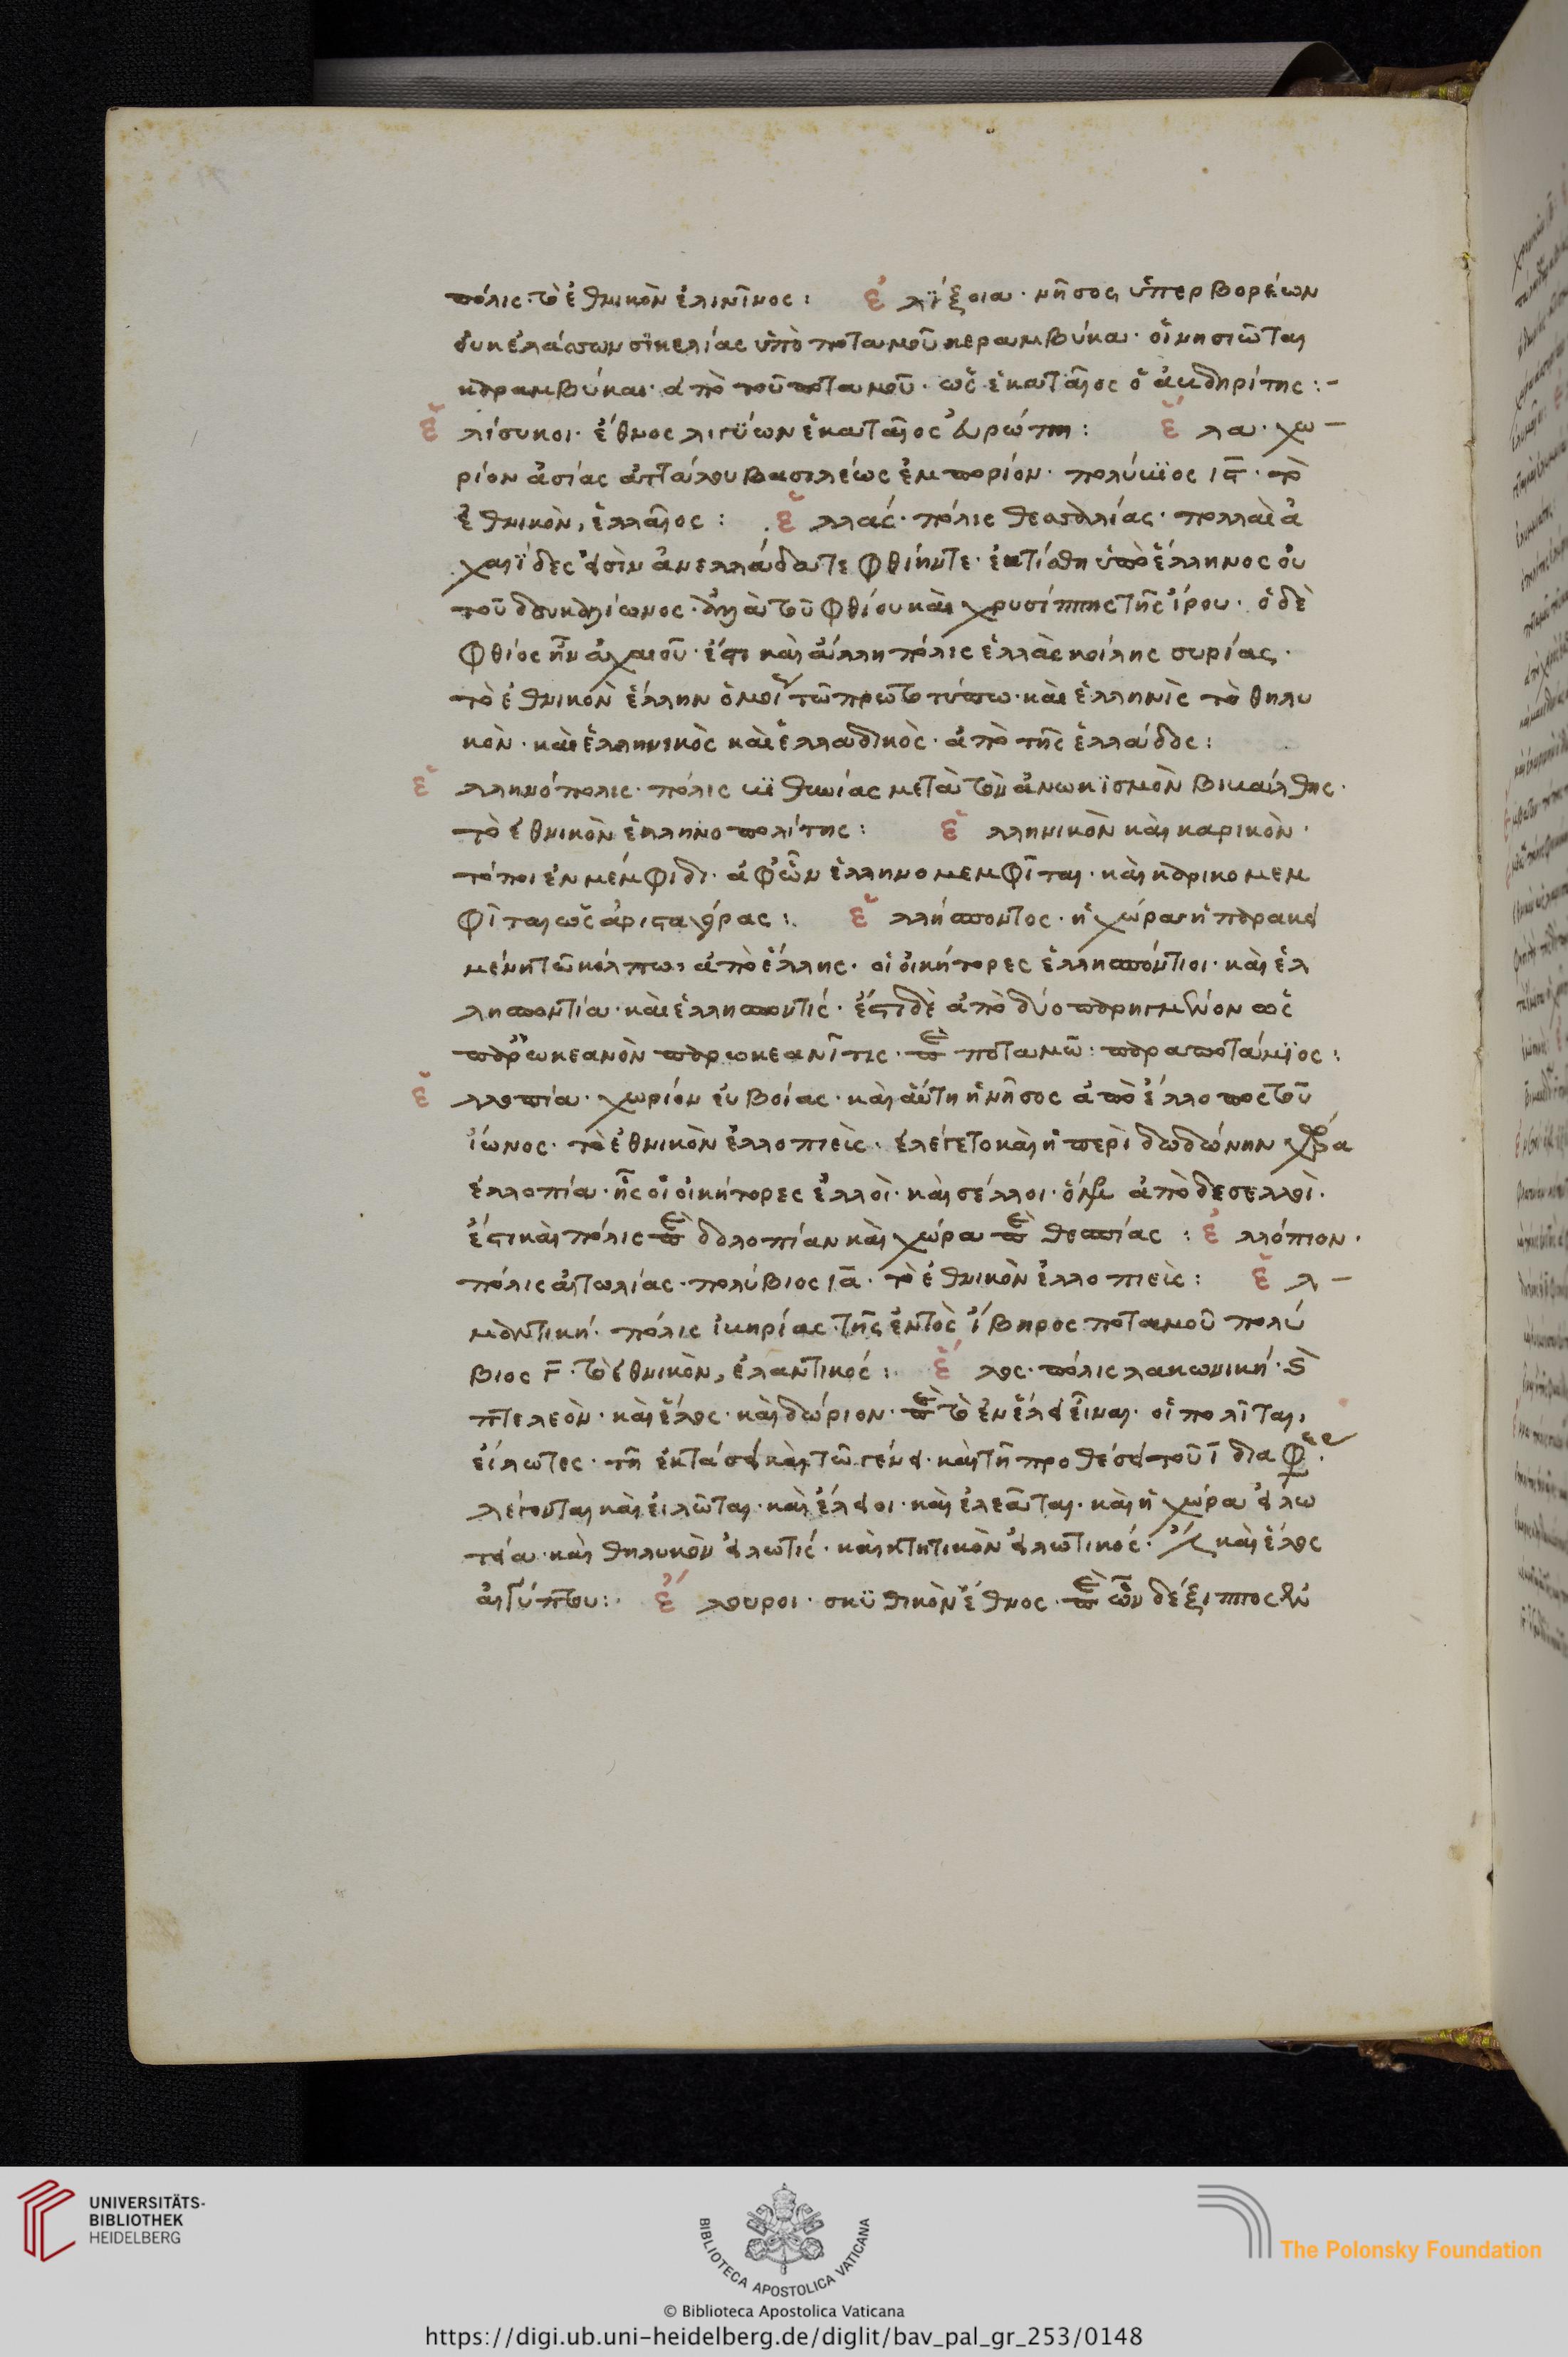 πόλις· τὸ ἐθνικὸν ἐλινῖνος: ἐλΐξοια· νῆσος ὑπερβορέων
οὐκ ἐλάσσων σϊκελίας ὑπὸ ποταμοῦ κεραμβύκα· οἱ νησιῶται
καραμβύκαι· ἀπὸ τοῦ ποταμοῦ· ὡς ἑκαταῖος ὁ ἀβδηρίτης:-
ἐλίσυκοι· ἔθνος λιγύων ἑκαταῖος εὐρώπη: ἔλα· χω-
ρίον ἀσίας ἀττάλου βασιλέως ἐμπορίον· πολύβϊος ιϛ· τὸ
ἐθνικὸν, ἐλλαῖος: ἑλλάς· πόλις θεσσαλίας· πολλαὶ ἀ
χαιΐδες εἰσὶν ἀν ελλάδα τε φθίην τε· ἐκτίσθη ὑπὸ ἕλληνος οὐ
τοῦ δευκαλίωνος· ἀλλὰ τοῦ φθίου καὶ χρυσίππης τῆς ἴρου· ὁ δὲ
φθίος ἦν ἀχαιοῦ· ἔστι καὶ ἄλλη πόλις ἑλλὰς κοίλης συρίας·
τὸ ἐθνικὸν ἕλλην ὁμοί τῶ πρωτοτύπω· καὶ ἑλληνὶς τὸ θηλυ
κὸν· καὶ ἑλληνικὸς καὶ ἑλλαδικὸς· ἀπὸ τῆς ἑλλάδος:
ἑλληνόπολις· πόλις βϊθυνίας μετὰ τὸν ἀνωκϊσμὸν βικαίλθης·
τὸ ἐθνικὸν ἑλληνοπολίτης: ἑλληνικὸν καὶ καρικὸν·
τόποι ἐν μέμφιδι· ἀφ' ὧν ἑλληνομεμφῖται· καὶ καρικομεμ
φῖται ὡς ἀρισταγόρας: ἑλλήσποντος· ἡ χώρα ἡ παρακει
μένη τῶ κόλπω, ἀπὸ ἕλλης· οἱ οἰκήτορες ἑλλησπόντιοι· καὶ ἑλ
λησποντία· καὶ ἑλλησποντίς· ἔστι δὲ ἀπὸ δύο παρηγμένον ὡς
παρ' ὠκεανὸν παρωκεανῖτις· παρὰ ποταμῶ: παραποτάμϊος:
ἐλλοπία· χωρίον εὐβοίας· καὶ αὕτη ἡ νῆσος ἀπὸ ἔλλοπος τοῦ
ἴωνος· τὸ ἐθνικὸν ἐλλοπιεὶς· ἐλέγετο καὶ ἡ περὶ δωδώνην χώρα
ἐλλοπία· ἧς οἱ οἰκήτορες ἐλλοὶ· καὶ σέλλοι· ὅμηρ ἀπὸ δε σελλοὶ·
ἔστι καὶ πόλις περὶ δολοπίαν καὶ χώρα περὶ θεσπίας: ἐλλόπιον·
πόλις αἰτωλίας· πολύβιος ια· τὸ ἐθνικὸν ἐλλοπιεὶς: ἐλ-
μαντική· πόλις ἰβηρίας τῆς ἐντὸς ἴβηρος ποταμοῦ πολύ
βιος γ· τὸ ἐθνικὸν, ἐλαντικός: ἕλος· πόλις λακωνική· καὶ
πτελεὸν· καὶ ἕλος· καὶ δώριον· παρὰ τὸ ἐν ἕλει εἶναι· οἱ πολῖται,
εἵλωτες· τῆ ἐκτάσει καὶ τῶ γένει· καὶ τῆ προθέσει τοῦ ι διαφ
λέγονται καὶ εἱλῶται· καὶ ἕλειοι· καὶ ἑλεᾶται· καὶ ἡ χώρα εἱλω
τεία· καὶ θηλυκὸν εἱλωτίς· καὶ κτητικὸν εἱλωτικός· ἔστι καὶ ἕλος
αἰγύπτου: ἔλουροι· σκϋθικὸν ἔθνος· περὶ ὧν δέξιππος ἐν
UNIVERSITÄTS-
BIBLIOTHEK
HEIDELBERG
BIBLIOTECA APOSTOLICA VATICANA
The Polonsky Foundation
© Biblioteca Apostolica Vaticana
https://digi.ub.uni-heidelberg.de/diglit/bav_pal_gr_253/0148